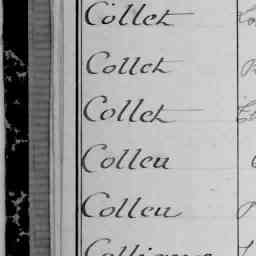 Collet
Collet
Collet
Colleu
Colleu